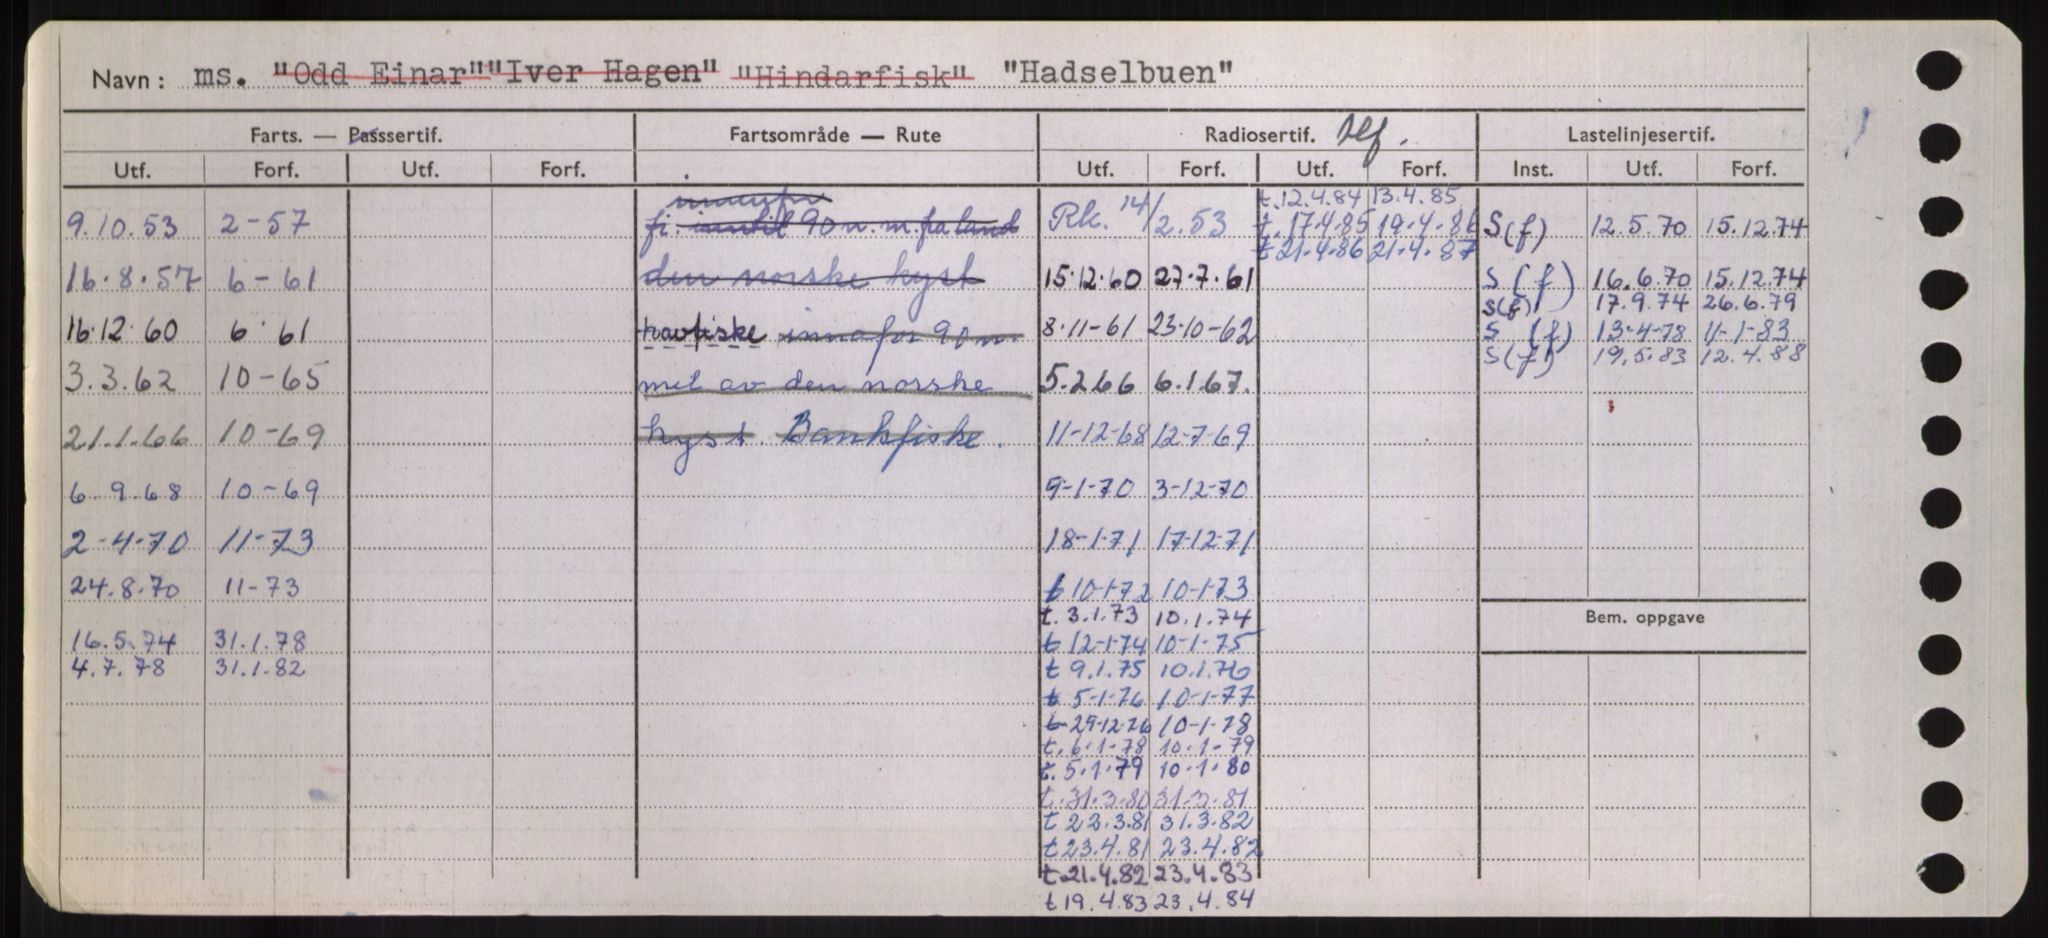 Navn: ms. "Odd Einar" "Iver Hagen" "Hindarfisk" "Hadselbuen"
Farts. — Passsertif. Fartsområde — Rute Radiosertif. tlf. Lastelinjesertif.
Utf. Forf. Utf. Forf. Utf. Forf. Utf. Forf. Inst. Utf. Forf.
innenfor t. 12.4.84 13.4.85
9.10.53 2-57 fi. inntil 90 n.m. fra land Rk. 14/2.53 t. 17.4.85 19.4.86 S(f) 12.5.70 15.12.74
t 21.4.86 21.4.87
16.8.57 6-61 den norske kyst 15.12.60 27.7.61 S(f) 16.6.70 15.12.74
S(f) 17.9.74 26.6.79
16.12.60 6.61 havfiske innafor 90 n. 8.11-61 23.10-62 S (f) 13-4-78 11-1-83
S(f) 19.5.83 12.4.88
3.3.62 10-65 mil av den norske 5.2.66 6.1.67.
21.1.66 10-69 kyst. Bankfiske. 11-12-68 12-7-69
6-9-68 10-69 9-1-70 3-12-70
2-4-70 11-73 18-1-71 17-12-71
24.8.70 11-73 t 10-1-72 10-1-73
t. 3.1.73 10.1.74
16.5.74 31.1.78 t 12-1-74 10-1-75
4.7.78 31.1.82 t 9.1.75 10.1.76
t 5-1-76 10-1-77
t 29-12-76 10-1-78
t. 6.1-78 10.1-79
t. 5.1.79 10.1.80
t. 31.3.80 31.3.81
t 22.3.81 31.3.82
t 23.4.81 23.4.82
t. 21.4.82 23.4.83
t 19.4.83 23.4.84
Bem. oppgave